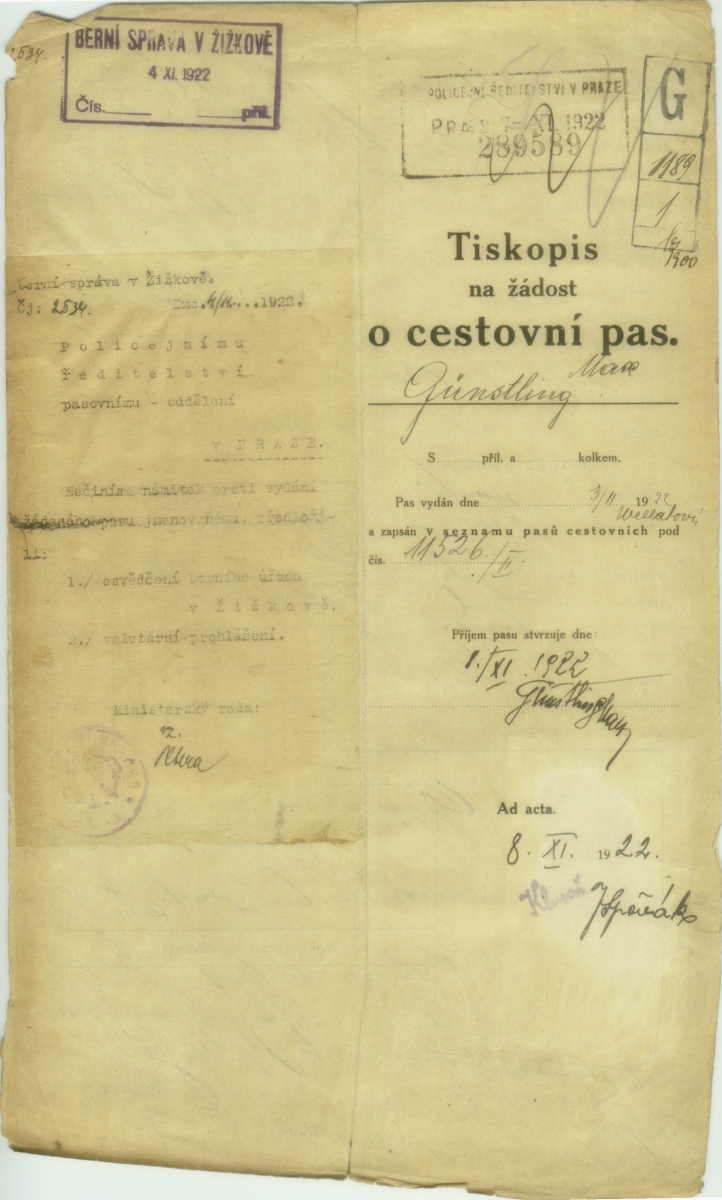 2534.
BERNÍ SPRÁVA V ŽIŽKOVĚ
4 XI. 1922
Čís. příl.
Berní správa v Žižkově.
Čj: 2534. Dne 1922.
Policejnímu
ředitelství
pasovnímu - oddělení
V PRAZE.
Nečiníme námitek proti vydání
žádaného pasu jmenovanému,
li:
1./ osvědčení berního úřadu
v Žižkově.
2./ valutární prohlášení.
Ministerský rada:
POLICEJNÍ ŘEDITELSTVÍ V PRAZE
XI. 1922
289589
G
1189
1
1900
Tiskopis
na žádost
o cestovní pas.
Günstling Max
S příl. a kolkem.
Pas vydán dne 1922
a zapsán v seznamu pasů cestovních pod
čís. 11526./II.
Příjem pasu stvrzuje dne:
8./XI. 1922
Günstling Max
Ad acta.
8. XI. 1922.